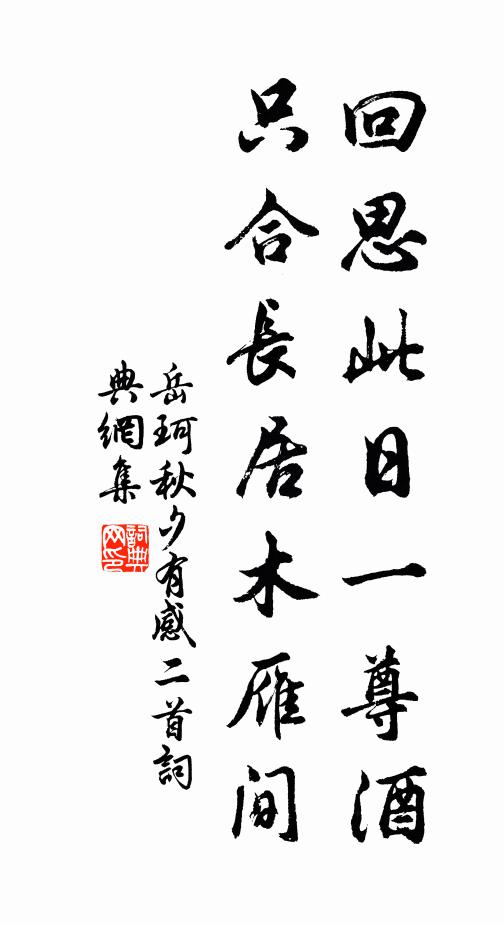 回思此日一尊酒
只合長居木雁间
岳珂秋夕有感二首詞
典網集
詞典网印